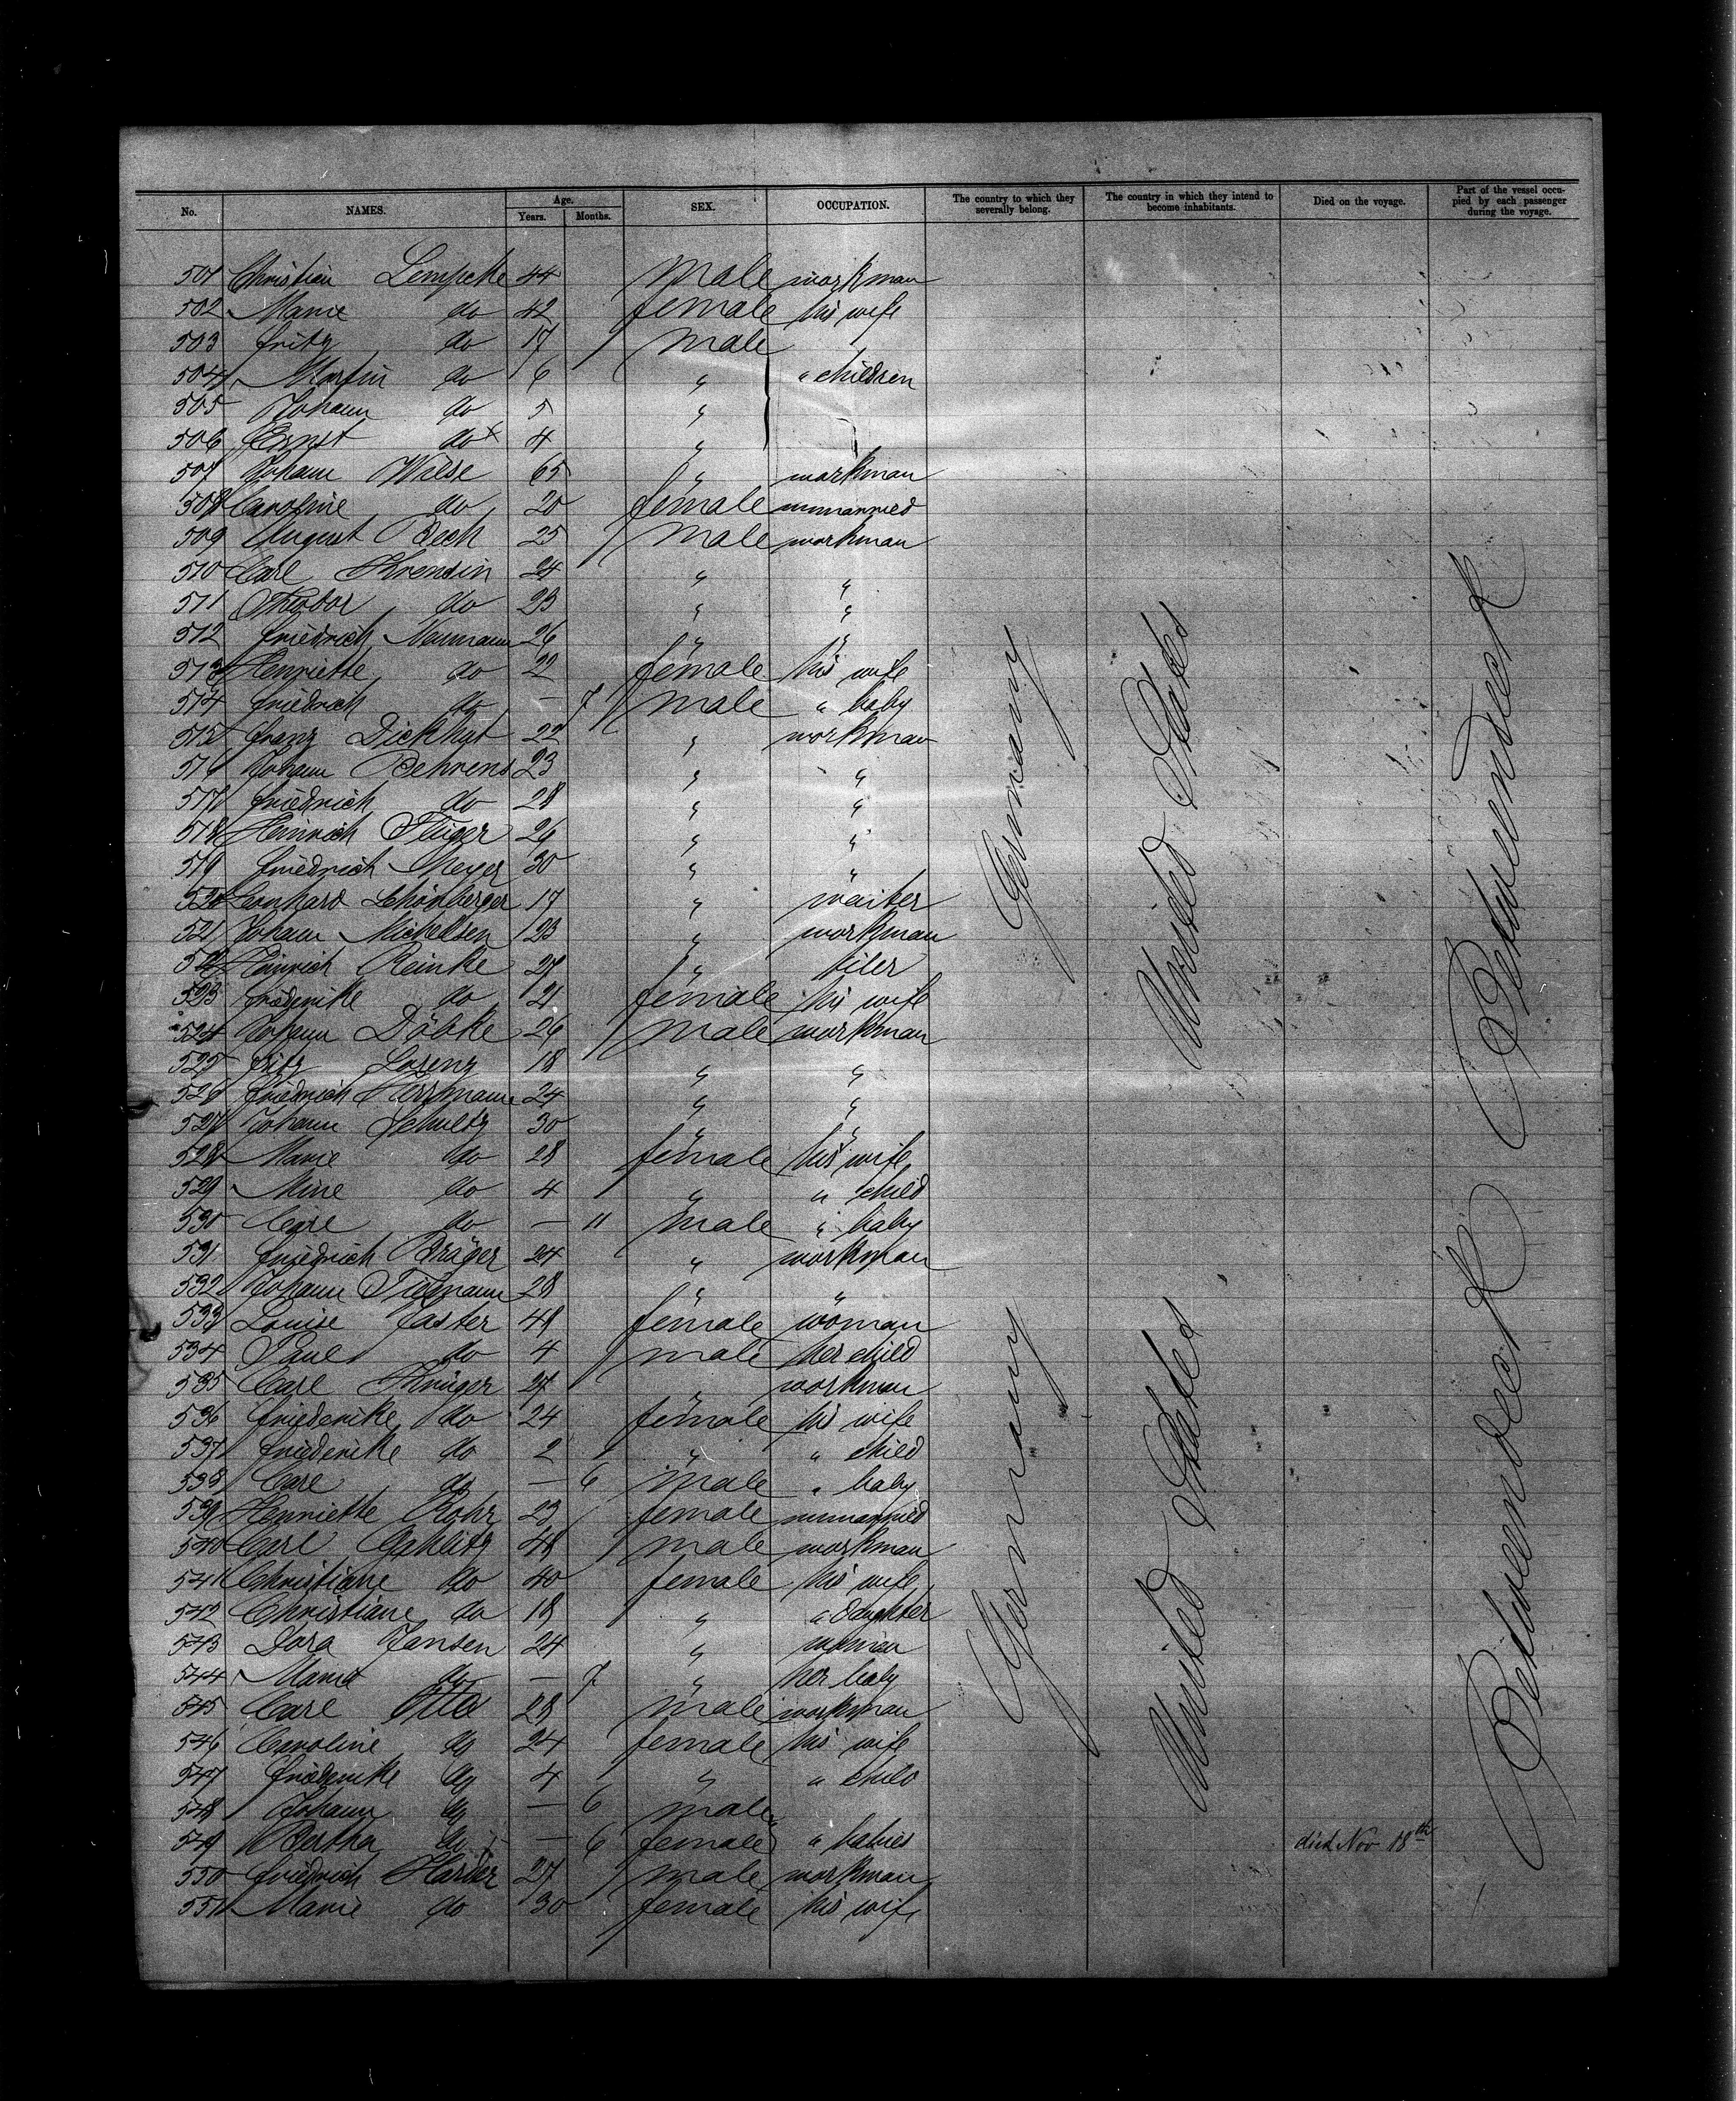 No. NAMES. Age. Years. Months. SEX. OCCUPATION. The country to which they severally belong. The country in which they intend to become inhabitants. Died on the voyage. Part of the vessel occupied by each passenger during the voyage.
501 Christian Lempcke 44 male workman
502 Marie do 42 female his wife
503 Fritz do 17 male
504 Martin do 6 " " children
505 Johann do 5 "
506 Ernst do x 4 "
507 Johann Wilse 65 " workman
508 Caroline do 20 female unmarried
509 August Beck 25 male workman
510 Carl 24 " "
511 Theodor do 23 " "
512 Friedrich Neumann 26 " "
513 Henriette do 22 female his wife
514 Friedrich do — 7 male " baby
515 Franz Dickhut 22 " workman
516 Johann Behrens 23 " "
517 Friedrich do 28 " "
518 Heinrich 26 " "
519 Friedrich Meyer 30 " "
520 Leonhard Schönberger 17 " waiter
521 Johann Michelsen 23 " workman
522 Heinrich Reinke 27 " tiler
523 Friederike do 21 female his wife
524 Johann Döbke 26 male workman
525 Fritz Lorenz 18 " "
526 Friedrich Herrmann 24 " "
527 Johann Schultz 30 " "
528 Marie do 28 female his wife
529 Mine do 4 " " child
530 Carl do — 11 male " baby
531 Friedrich Präger 24 " workman
532 Johann Tiemann 28 " "
533 Louise Jaster 48 female woman
534 Paul do 4 male her child
535 Carl Krüger 27 " workman
536 Friederike do 24 female his wife
537 Friederike do 2 " " child
538 Carl do — 6 male " baby
539 Henriette Rohr 23 female unmarried
540 Carl 48 male workman
541 Christiane do 40 female his wife
542 Christiane do 18 " " daughter
543 Dora Jansen 24 " woman
544 Maria do — 7 " her baby
545 Carl Otto 28 male workman
546 Caroline do 24 female his wife
547 Friederike do 4 " " child
548 Johann do — 6 male
549 Bertha do — 6 female " babies died Nov 18th
550 Friedrich Harder 27 male workman
551 Marie do 30 female his wife
Germany
United States
Betweendeck
Germany
United States
Betweendeck